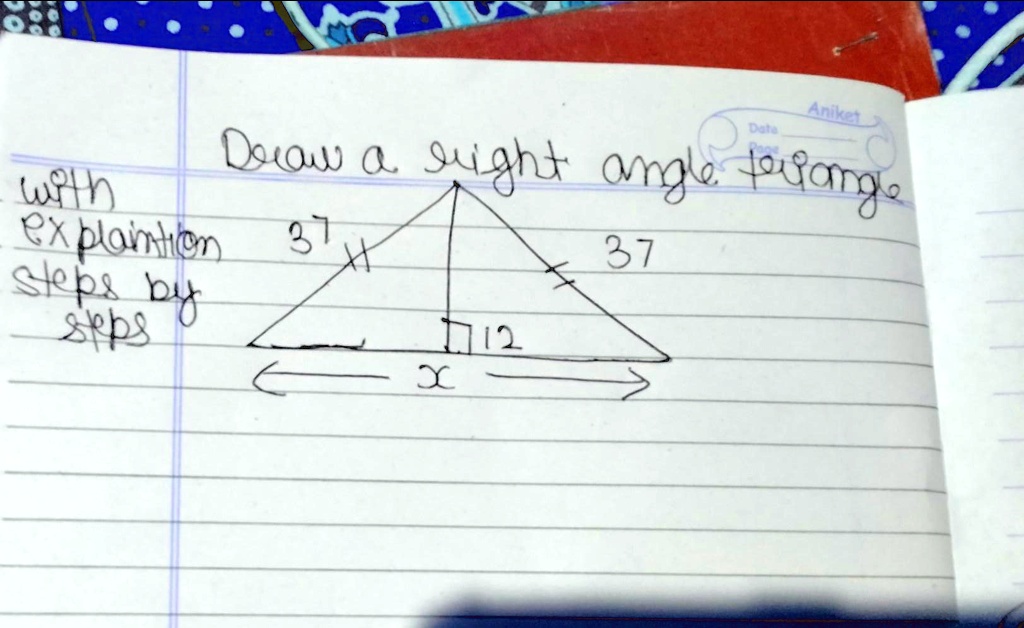 Aniket
Date
Page
Draw a right angle triangle
with
explaintion
steps by
steps
37
37
12
x